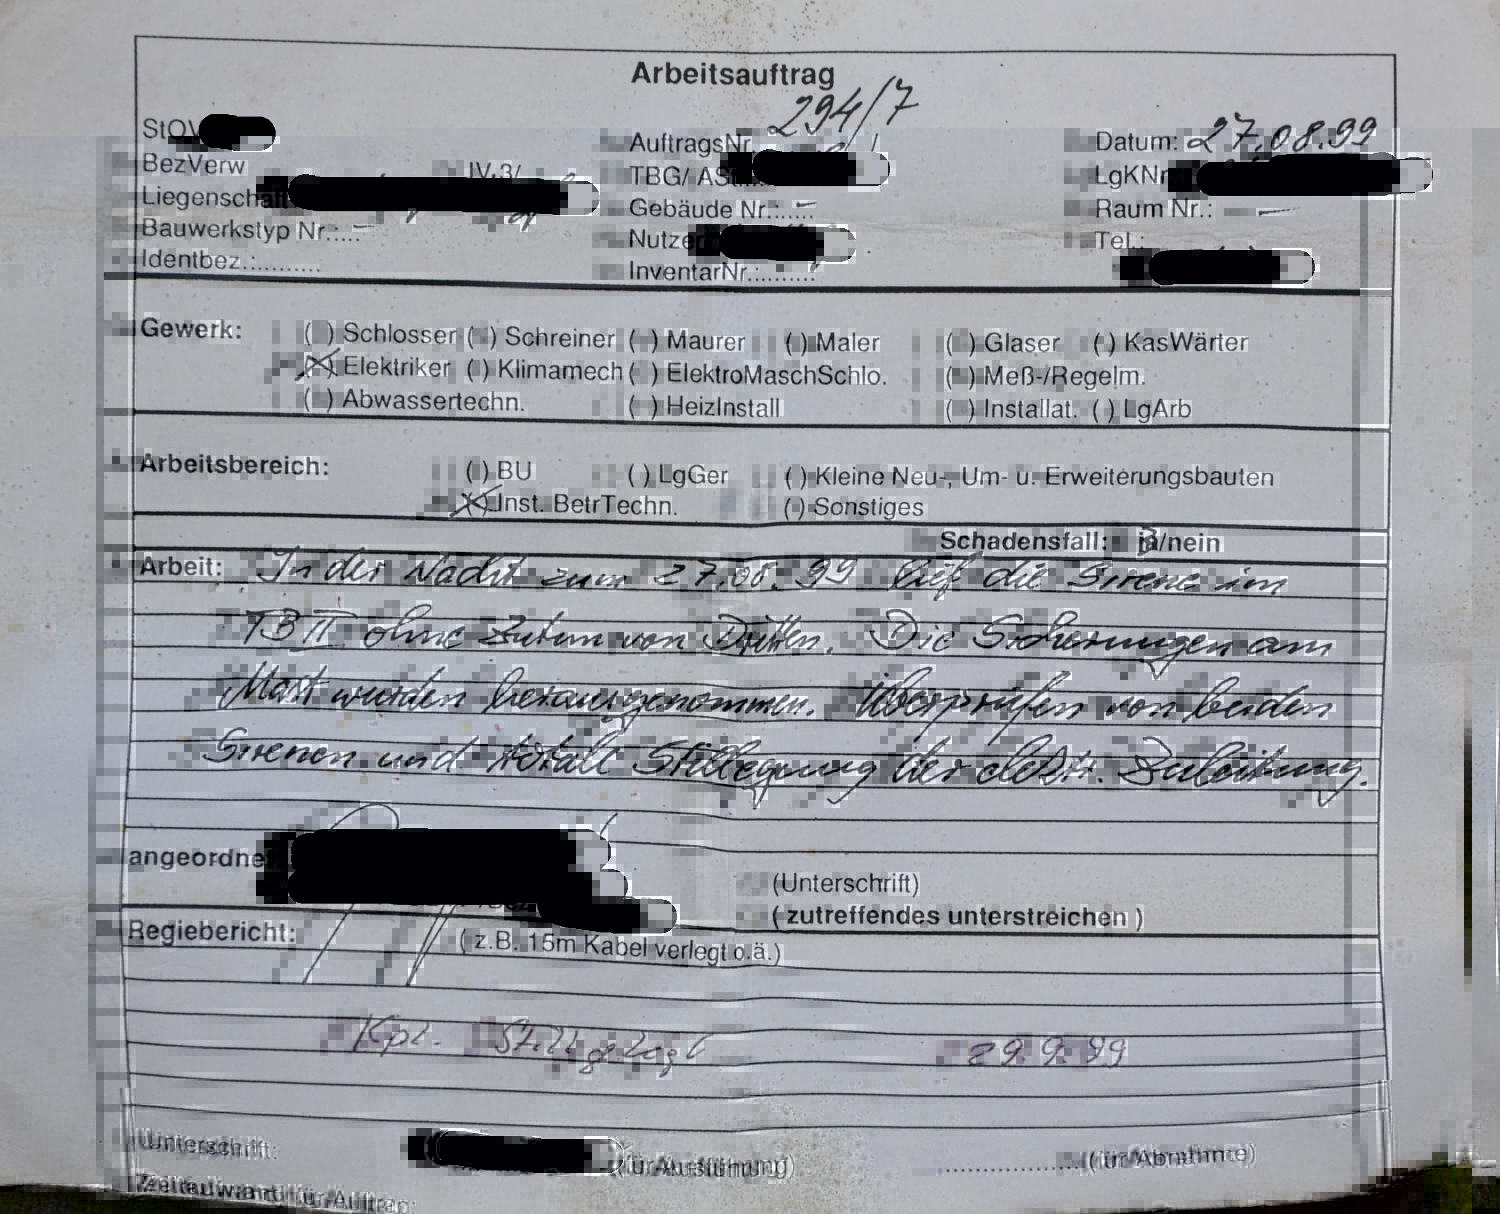 Arbeitsauftrag
StOV
AuftragsNr. 294/7
Datum: 27.08.99
BezVerw IV.3/
TBG/ ASt
LgKNr
Liegenschaft
Gebäude Nr.: –
Raum Nr.: –
Bauwerkstyp Nr.:.... –
Nutzer
Tel.:
Identbez.:..........
InventarNr.:.........
Gewerk: ( ) Schlosser ( ) Schreiner ( ) Maurer ( ) Maler ( ) Glaser ( ) KasWärter
(X) Elektriker ( ) Klimamech ( ) ElektroMaschSchlo. ( ) Meß-/Regelm.
( ) Abwassertechn. ( ) HeizInstall ( ) Installat. ( ) LgArb
Arbeitsbereich: ( ) BU ( ) LgGer ( ) Kleine Neu-, Um- u. Erweiterungsbauten
(X) Inst. BetrTechn. ( ) Sonstiges
Schadensfall: ja/nein
Arbeit: In der Nacht zum 27.08.99 lief die Sirene im
TB II ohne Zutun von Dritten. Die Sicherungen am
Mast wurden herausgenommen. Überprüfen von beiden
Sirenen und totale Stillegung der elektr. Zuleitung.
angeordnet
(Unterschrift)
( zutreffendes unterstreichen )
Regiebericht: ( z.B. 15m Kabel verlegt o.ä.)
Kpl. Stillgelegt 29.9.99
Unterschrift: (für Ausführung) (für Abnahme)
Zeitaufwand für Auftrag: